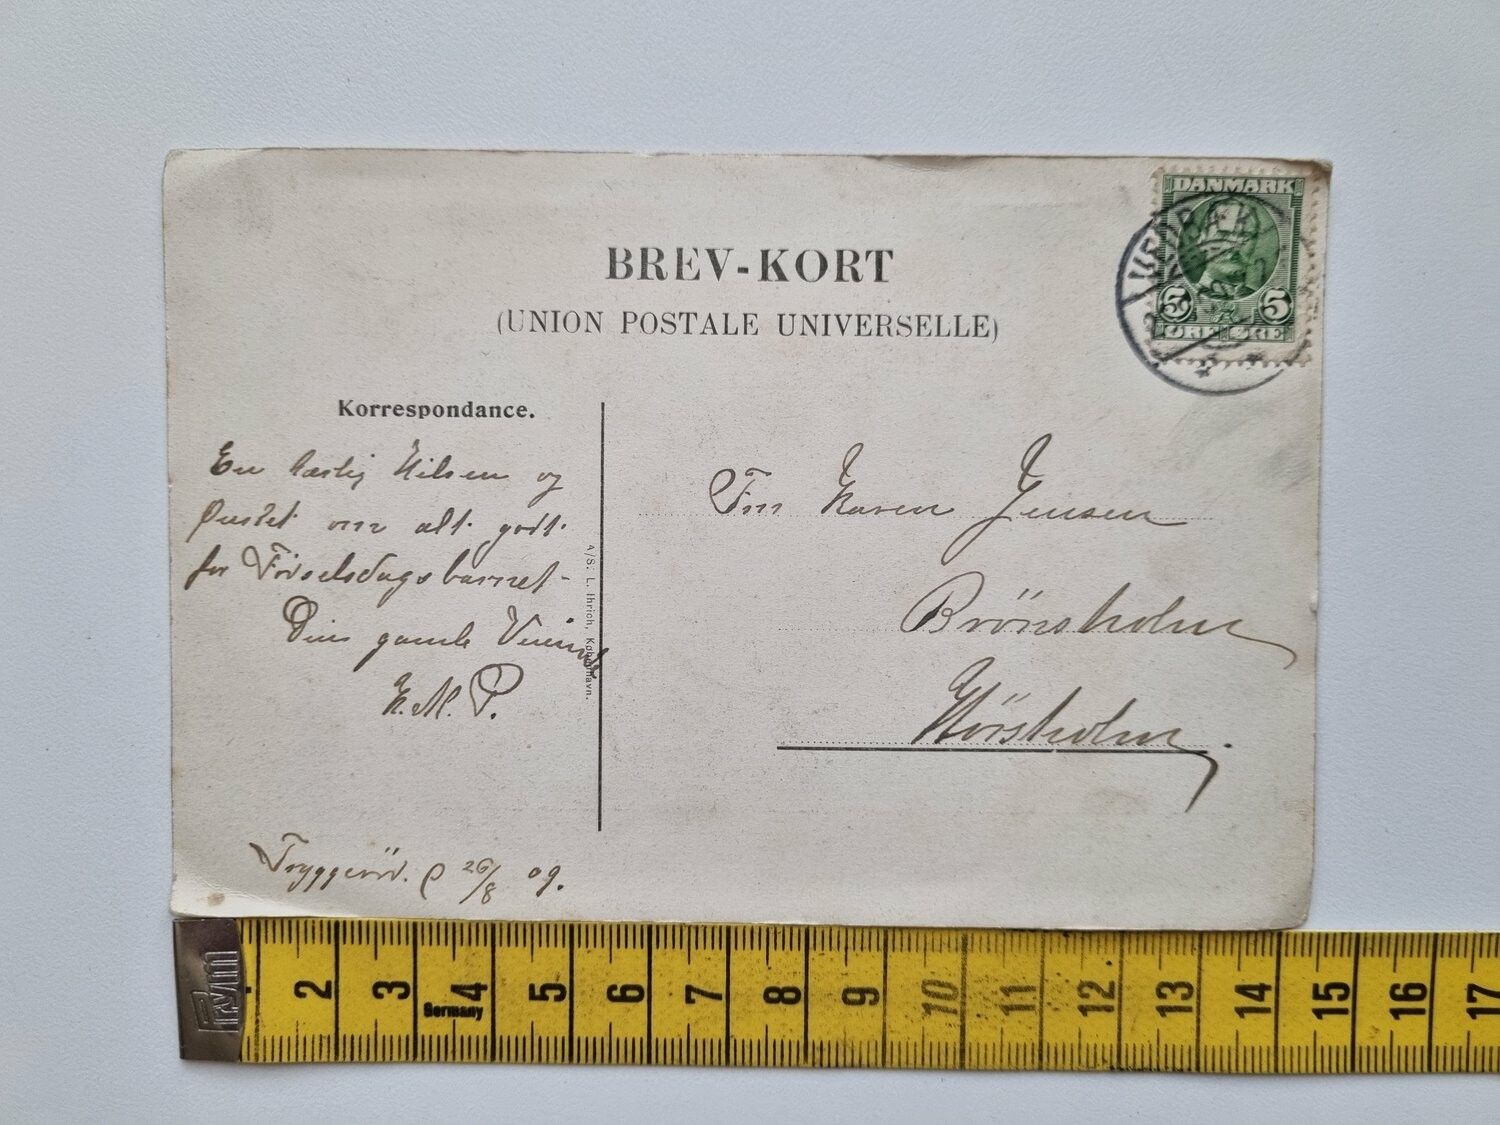 BREV-KORT
(UNION POSTALE UNIVERSELLE)
DANMARK
5 5
ØRE ØRE
Korrespondance.
En kærlig Hilsen og
Ønsket om alt godt
for Födselsdagsbarnet -
Din gamle Veninde
K.M.P.
Tryggeröd. D 26/8 09.
A/S. L. Ihrich, København.
Frk Karen Jensen
Brönsholm
Hörsholm.
Prym
Germany
2 3 4 5 6 7 8 9 10 11 12 13 14 15 16 17